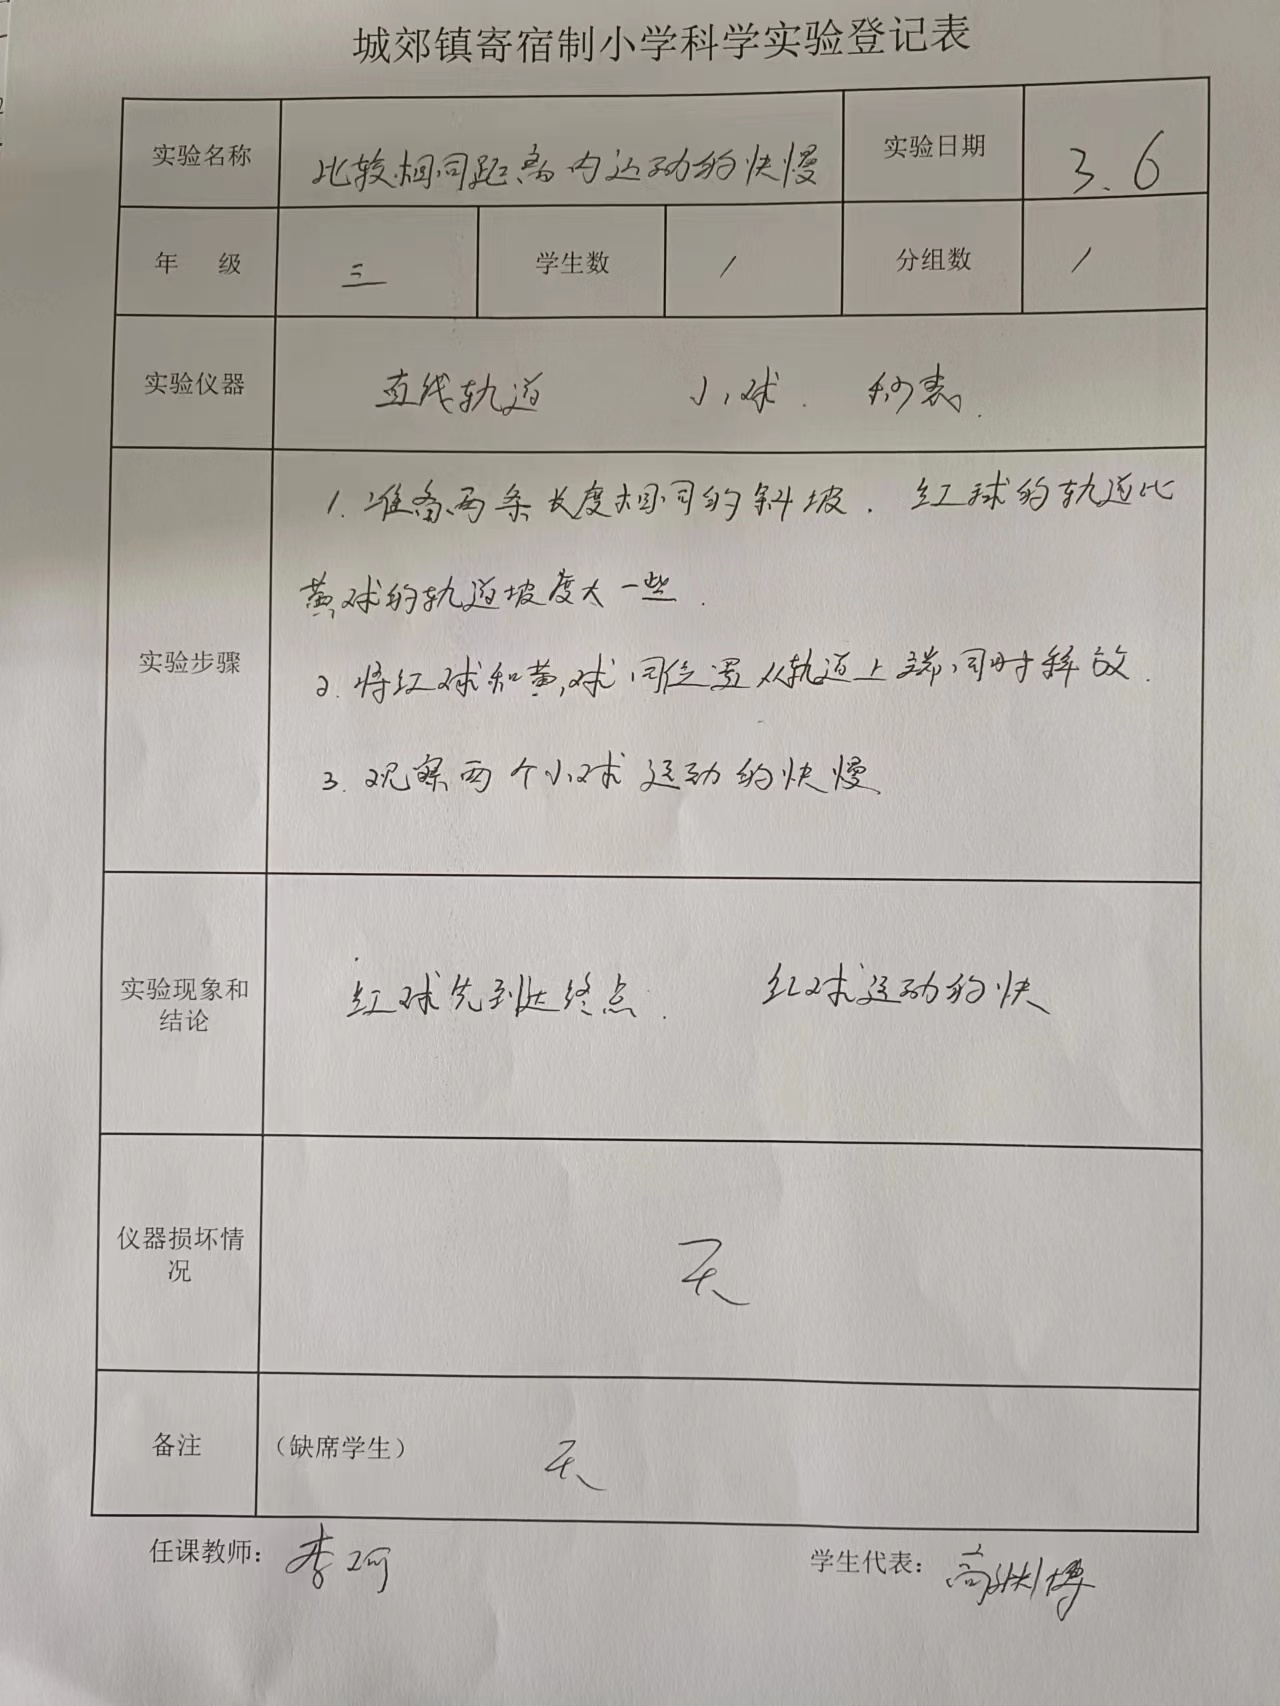 城郊镇寄宿制小学科学实验登记表
实验名称 比较相同距离内运动的快慢 实验日期 3.6
年 级 三 学生数 / 分组数 /
实验仪器 直线轨道 小球. 秒表.
实验步骤
1. 准备两条长度相同的斜坡. 红球的轨道比
黄球的轨道坡度大一些.
2. 将红球和黄球同位置从轨道上端同时释放.
3. 观察两个小球运动的快慢
实验现象和
结论
红球先到达终点. 红球运动的快
仪器损坏情
况
无
备注 (缺席学生) 无
任课教师: 李珂
学生代表: 高 博